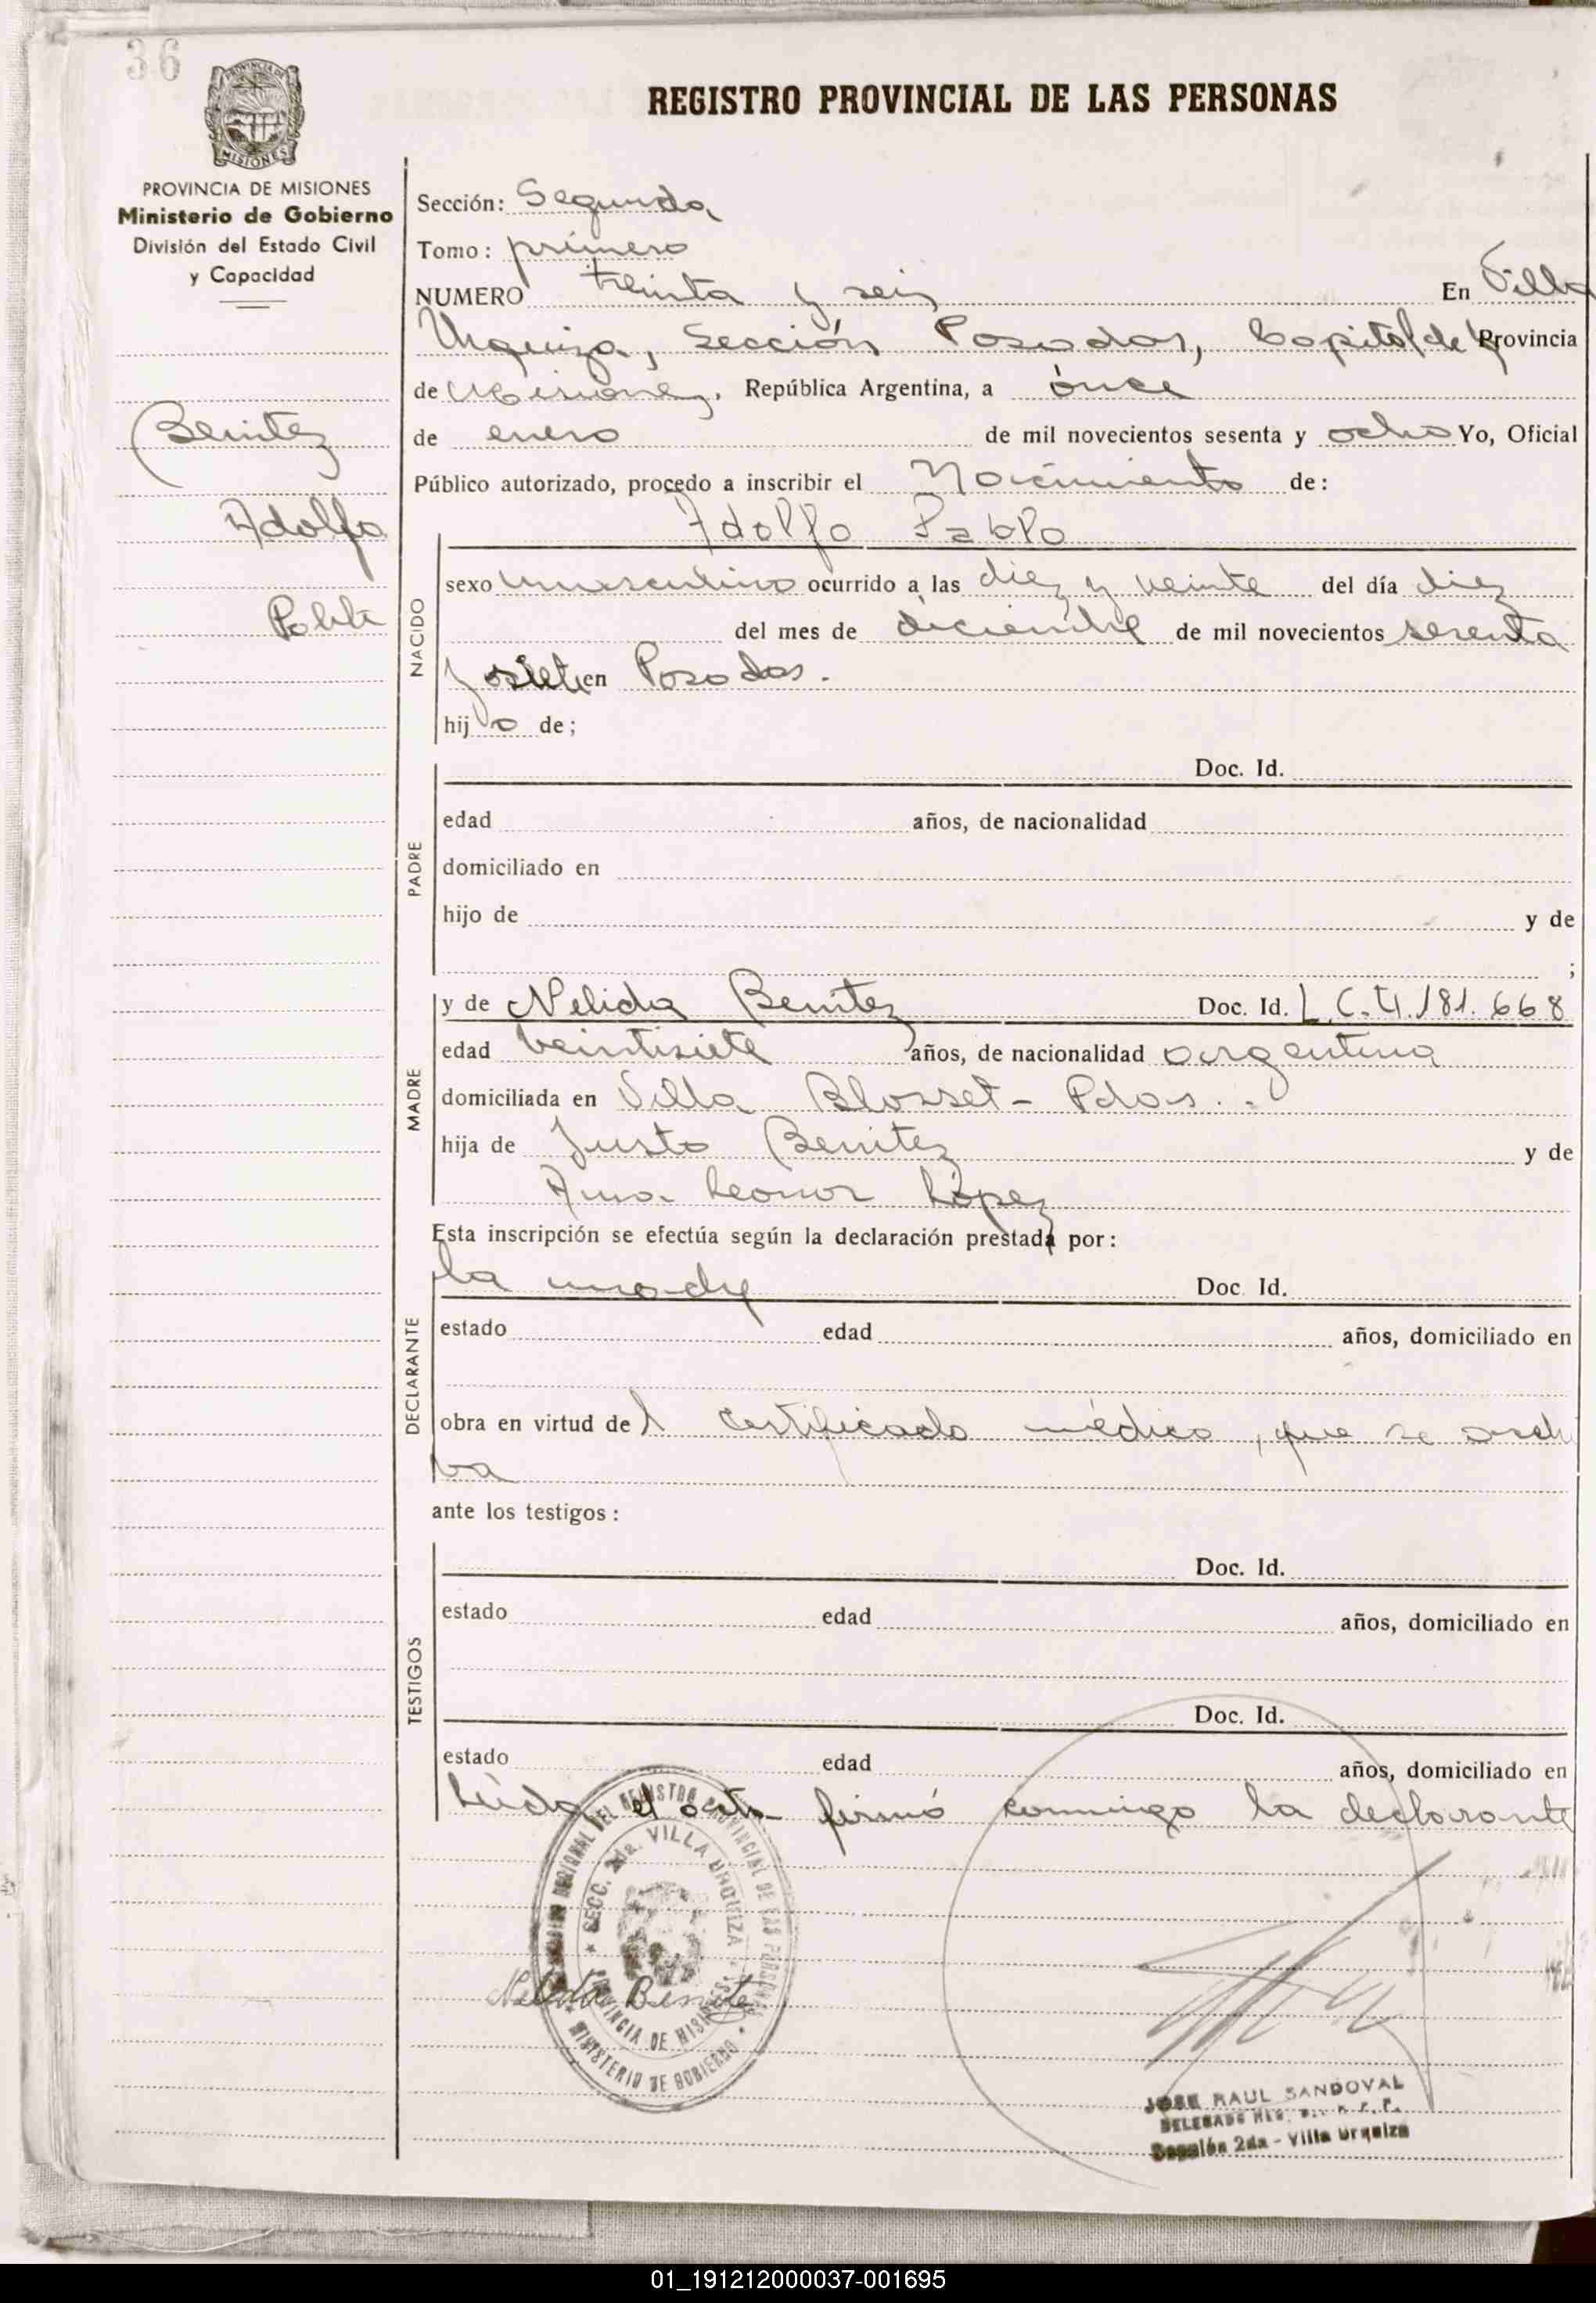 36
PROVINCIA DE
MISIONES
REGISTRO PROVINCIAL DE LAS PERSONAS
PROVINCIA DE MISIONES
Ministerio de Gobierno
División del Estado Civil
y Capacidad
Benitez
Adolfo
Pablo
Sección: Segunda
Tomo: primero
NUMERO treinta y seis En Villa
Urquiza, Sección Posadas, Capital de la Provincia
de Misiones, República Argentina, a once
de enero de mil novecientos sesenta y ocho Yo, Oficial
Público autorizado, procedo a inscribir el Nacimiento de:
NACIDO
Adolfo Pablo
sexo masculino ocurrido a las diez y veinte del día diez
del mes de diciembre de mil novecientos sesenta
y siete en Posadas.
hij o de;
PADRE
Doc. Id.
edad años, de nacionalidad
domiciliado en
hijo de y de
;
MADRE
y de Nelida Benitez Doc. Id. L.C.4.181.668
edad veintisiete años, de nacionalidad argentina
domiciliada en Villa Blosset - Pdas..
hija de Justo Benitez y de
Ana Leonor López
Esta inscripción se efectúa según la declaración prestada por:
DECLARANTE
la madre Doc. Id.
estado edad años, domiciliado en
obra en virtud del certificado médico, que se archi
va
ante los testigos:
TESTIGOS
Doc. Id.
estado edad años, domiciliado en
Doc. Id.
estado edad años, domiciliado en
Leida el acta firmó conmigo la declarante
REGIONAL DEL REGISTRO PROVINCIAL DE LAS PERSONAS
SECC. 2da. VILLA URQUIZA
PROVINCIA DE MISIONES
MINISTERIO DE GOBIERNO
Nelida Benitez
JOSE RAUL SANDOVAL
DELEGADO REG.
Sección 2da - Villa Urquiza
01_191212000037-001695